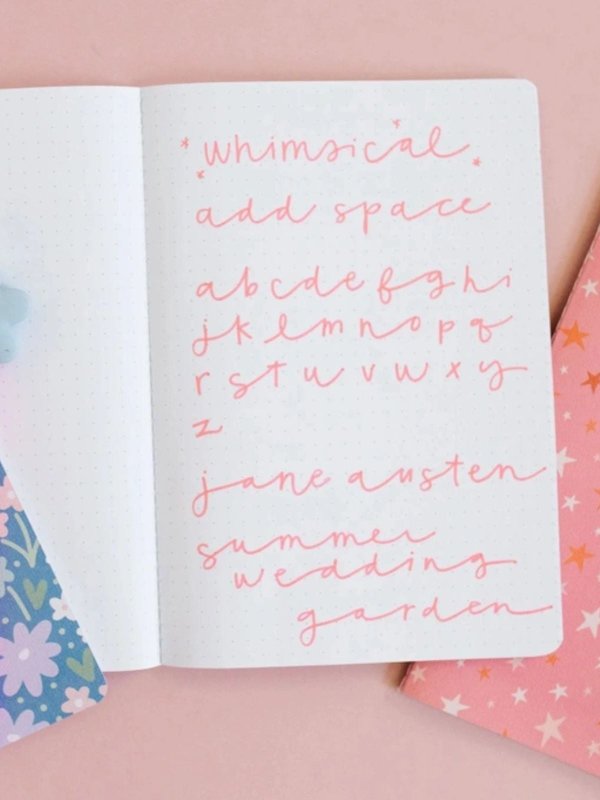 whimsical
add space
a b c d e f g h i
j k l m n o p q
r s t u v w x y
z
jane austen
summer
wedding
garden